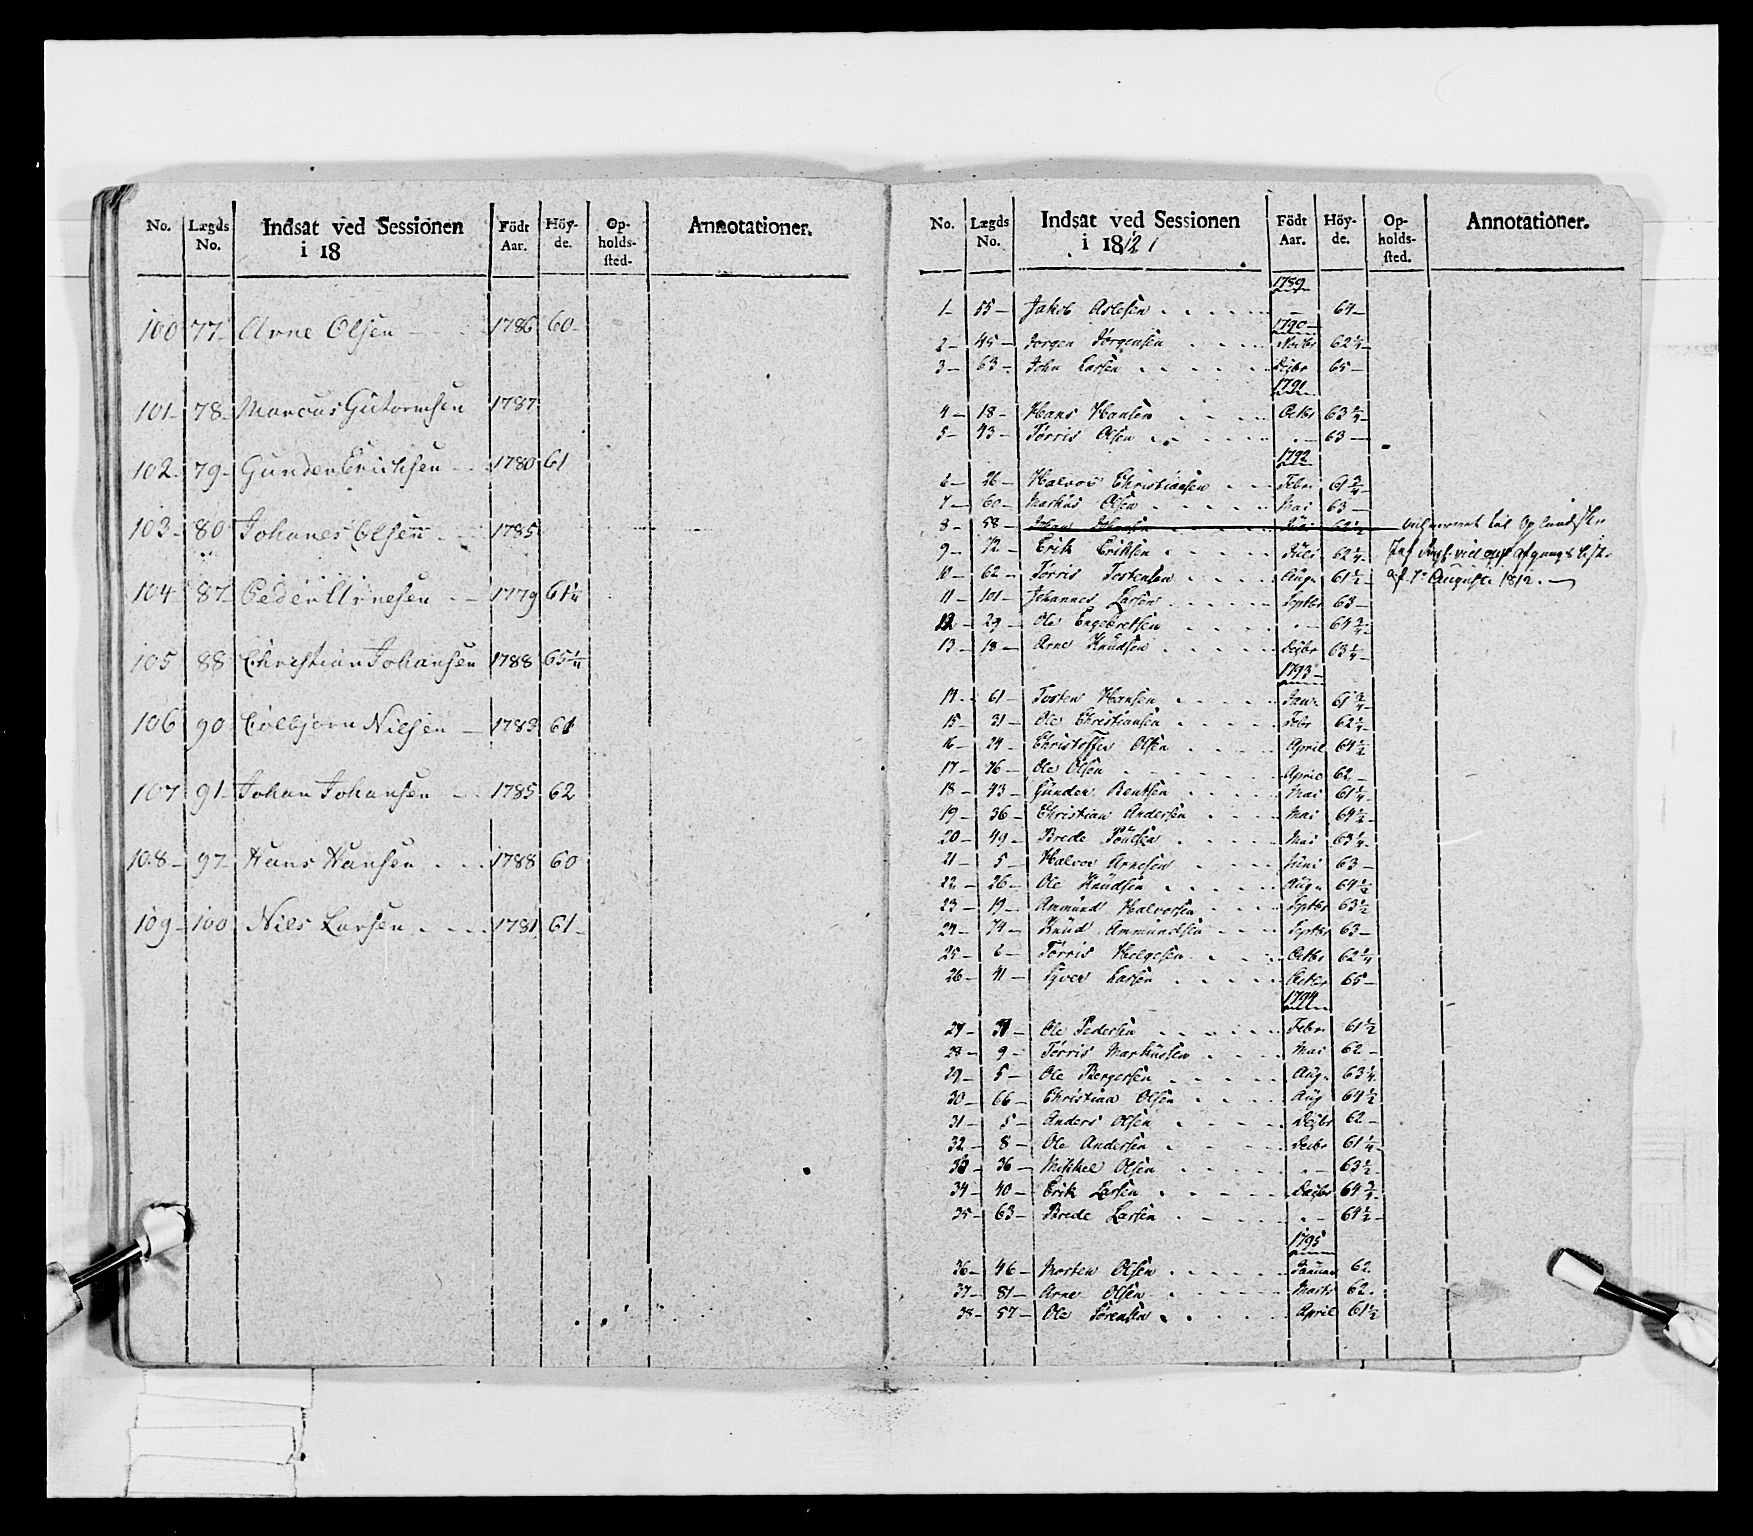 No. Lægds No. Indsat ved Sessionen i 18 Födt Aar. Höyde. Opholdssted. Annotationer.
100 77 Arne Olsen 1786 60
101 78 Marcus Gutormsen 1787
102 79 Gunder Erichsen 1780 61
103 80 Johanes Olsen 1785
104 87 Peder Arnesen 1779 61 1/4
105 88 Christian Johansen 1788 65 1/4
106 90 Colbjørn Nilsen 1783 61
107 91 Johan Johansen 1785 62
108 97 Hans Hansen 1788 60
109 100 Nils Larsen 1781 61
No. Lægds No. Indsat ved Sessionen i 1812 Födt Aar. Höyde. Opholdssted. Annotationer.
1789
1 55 Jakob Aslesen 64
1790
2 45 Jørgen Jørgensen Novbr 62 1/4
3 63 John Larsen Decbr 65
1791
4 18 Hans Hansen Octbr
5 43 Tørris Olsen 63
1792
6 26 Halvor Christiansen Febr 61 3/4
7 60 Markus Olsen Mai 63
8 58 Johan Johansen
9 72 Erik Eriksen Juli 62 1/4
10 62 Tørris Torstensen Aug. 61 1/2
af 7 August 1812.
11 101 Johannes Larsen Septbr 63
12 29 Ole Engebretsen 64 3/4
13 18 Arne Knudsen Decbr 63 1/4
1793
14 61 Torsten Hansen Jan. 61 3/4
15 31 Ole Christiansen Febr 62 1/4
16 24 Christoffer Olsen April 64 1/2
17 76 Ole Olsen April 62
18 43 Gunder Bentsen Mai 61 1/4
19 36 Christian Andersen Mai 64 1/2
20 49 Brede Poulsen Mai 63 1/4
21 5 Halvor Arnesen Juni 63
22 26 Ole Knudsen Aug. 64 1/2
23 19 Ammund Halvorsen Septbr 63 1/2
24 74 Knud Ammundsen Septbr 63
25 6 Tørris Helgesen Octbr 62 1/4
26 41 Syver Larsen Octbr 65
1794
27 Ole Pedersen Febr 61 1/2
28 9 Tørris Markussen Mai 62
29 5 Ole Bergersen Aug. 63 1/4
30 66 Christian Olsen Aug 64 1/2
31 5 Anders Olsen Decbr 62
32 8 Ole Andersen Decbr 61 1/4
33 36 Mikkel Olsen 63 1/2
34 40 Erik Larsen Decbr 64 3/4
35 63 Brede Larsen 64 1/2
1795
36 46 Morten Olsen Januar 62
37 81 Arne Olsen Marts 62
38 57 Ole Sørensen April 61 1/2